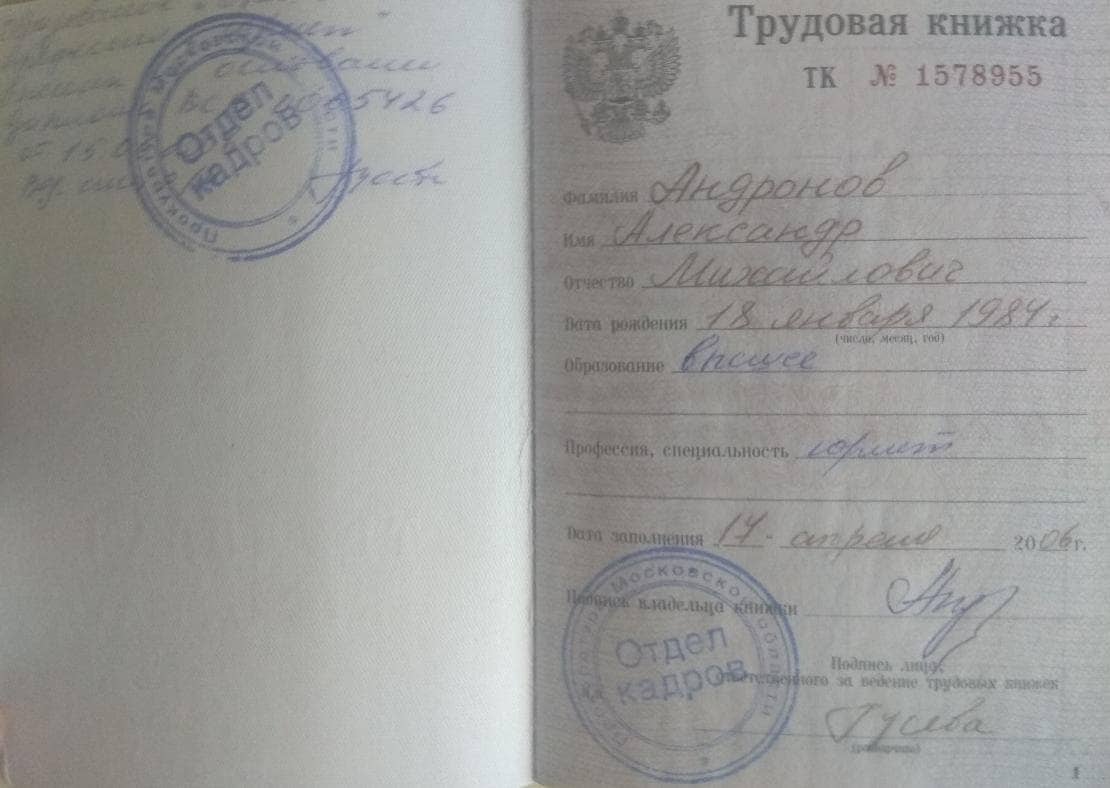 основании
ВСГ 4085426
Прокуратура Московской области
Отдел
кадров
Трудовая книжка
ТК № 1578955
Фамилия Андронов
Имя Александр
Отчество Михайлович
Дата рождения 18 января 1984 г
(число, месяц, год)
Образование высшее
Профессия, специальность юрист
Дата заполнения 17 - апреля 2006 г.
Подпись владельца книжки
Прокуратура Московской области
Отдел
кадров
Подпись лица,
ответственного за ведение трудовых книжек
Гусева
(разборчиво)
1